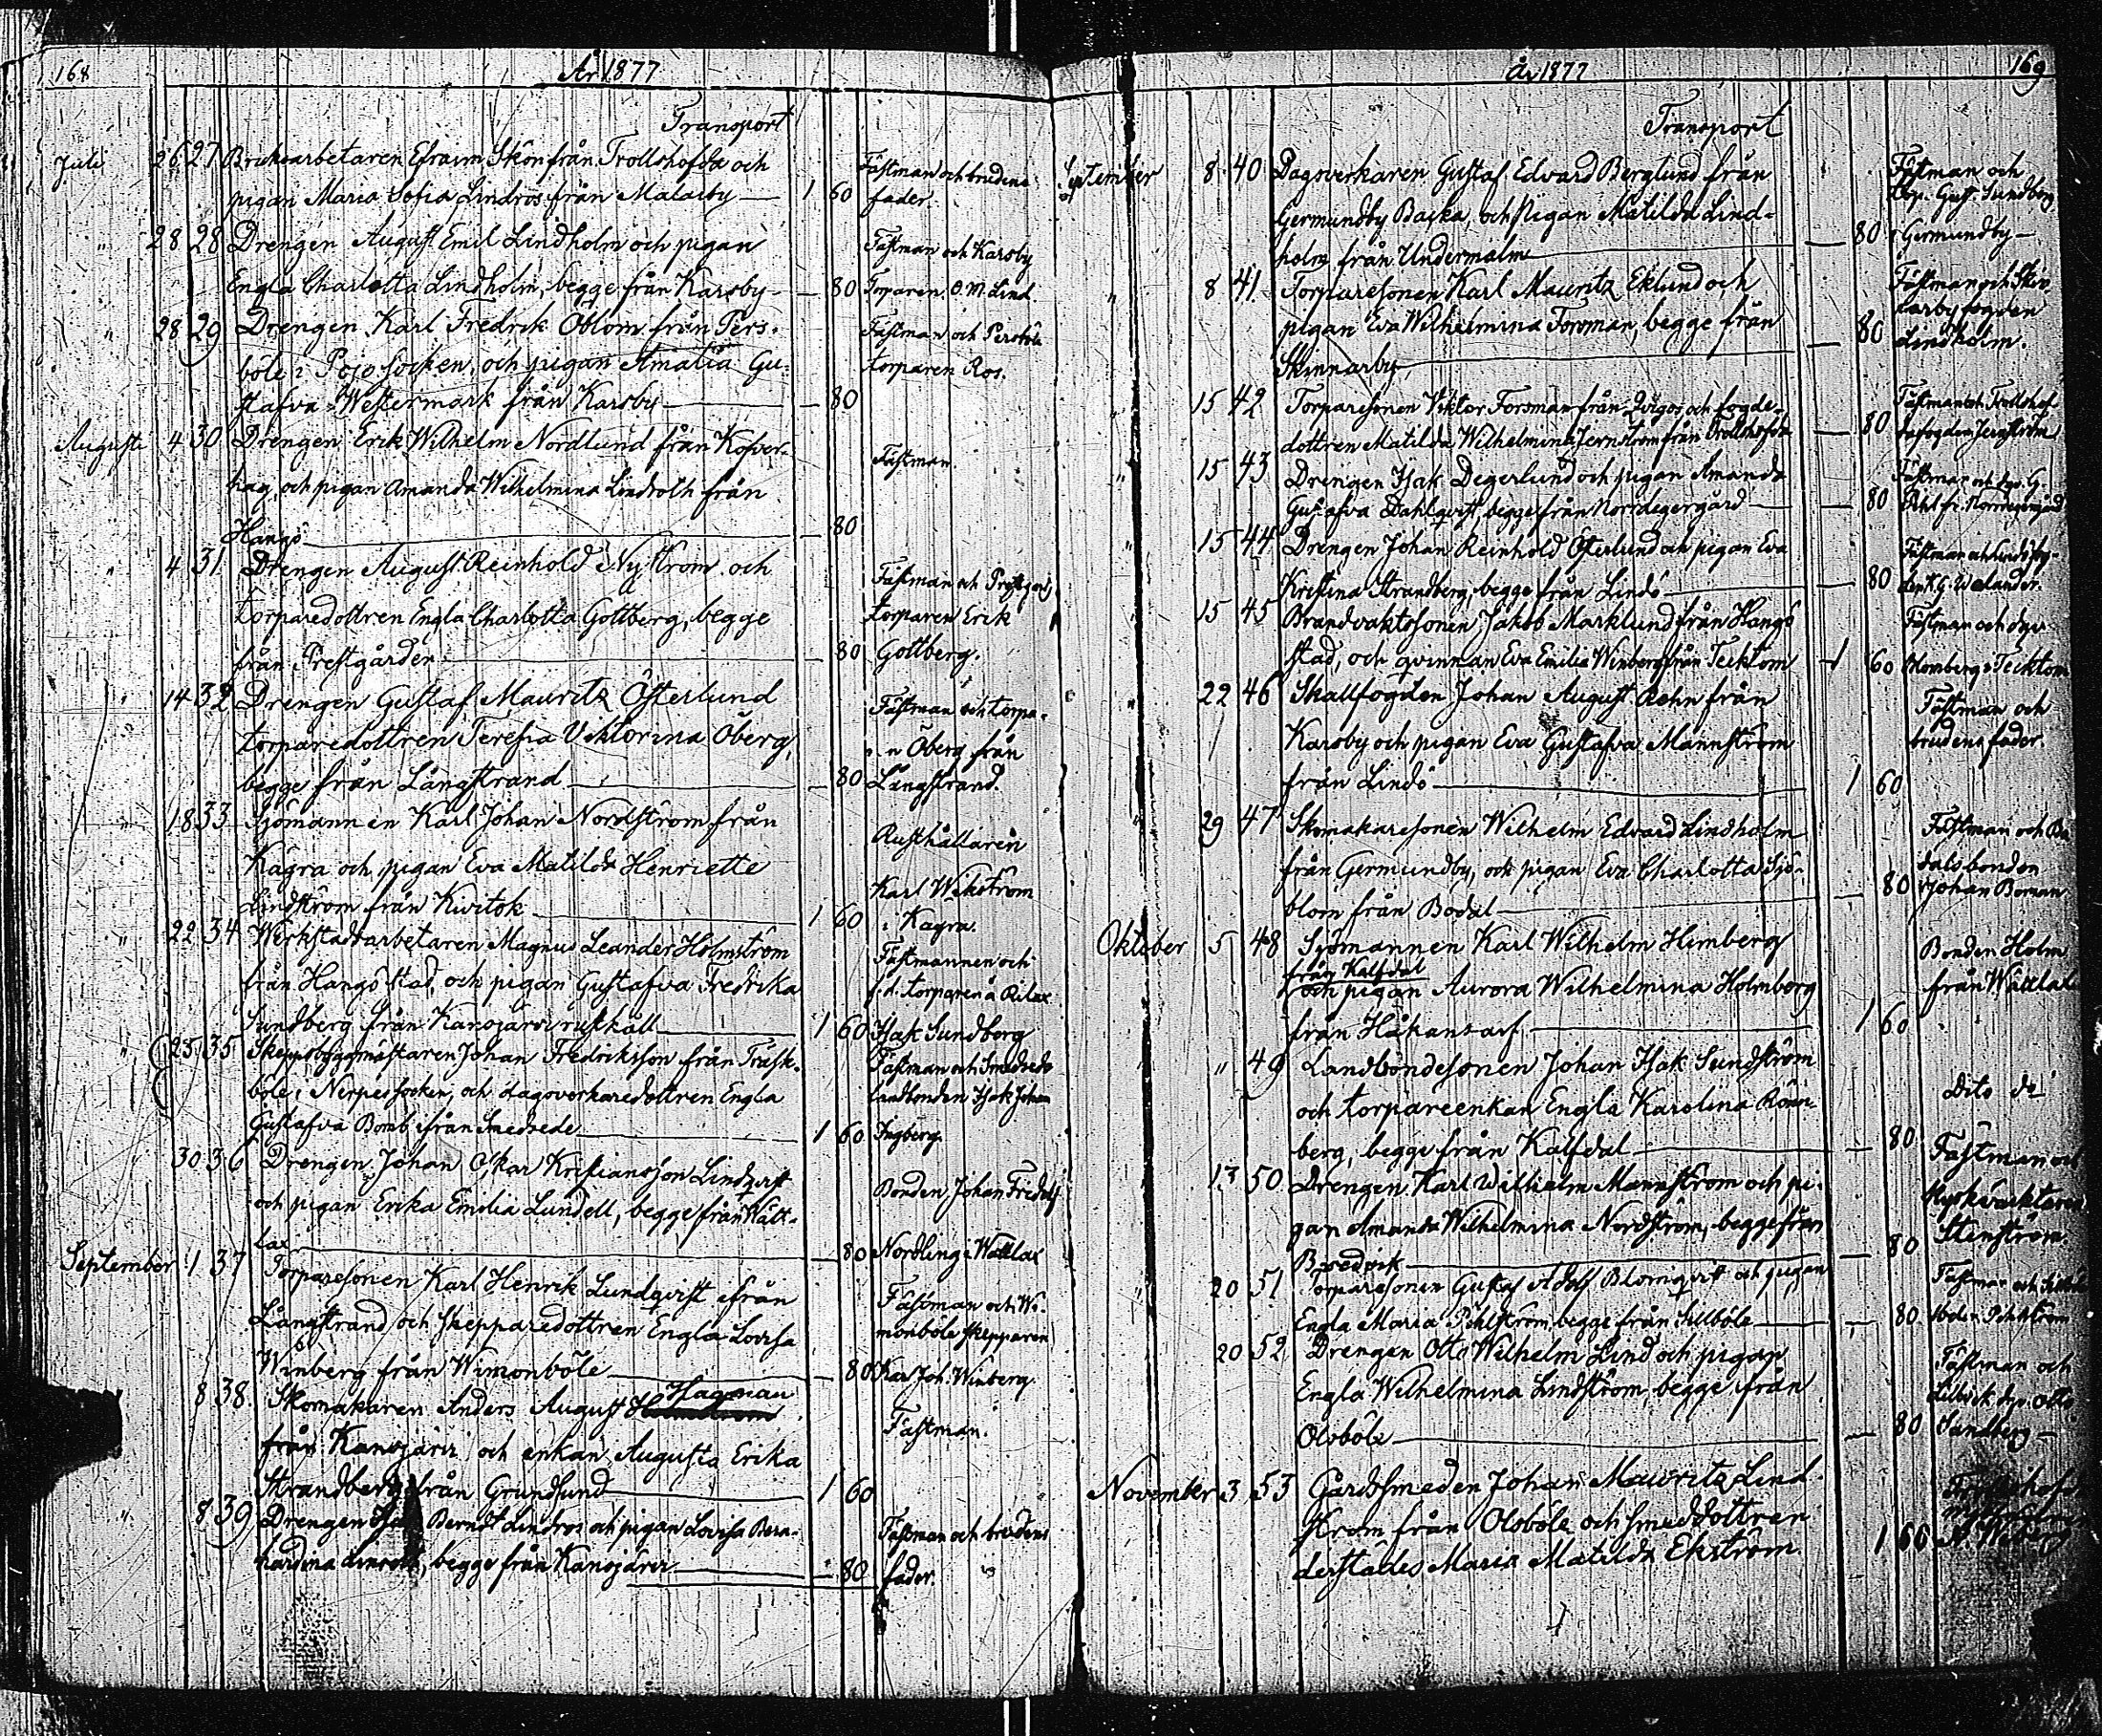 168
År 1877
Transport
Juli 26 27 Bruksarbetaren Efraim Skön från Trollshofda och
pigan Maria Sofia Lindros från Malarby — 1 60
Fästman och brudens
fader.
" 28 28 Drengen August Emil Lindholm och pigan
Engla Charlotta Lindholm, begge från Karsby — 80
Fästman och Karsby
Torparen O. M. Lind.
" 28 29 Drengen Karl Fredrik Öblom från Pers-
böle i Pojo socken, och pigan Amalia Gu-
stafva Westermark från Karsby — 80
Fästman och Persböle
torparen Ros.
Augusti 4 30 Drengen Erik Wilhelm Nordlund från Kofver-
hag, och pigan Amanda Wilhelmina Lindroth från
Hangö — 80
Fästman.
" 4 31 Drengen August Reinhold Nyström och
torparedottren Engla Charlotta Gottberg, begge
från Prestgården — 80
Fästman och Prestgårds
torparen Erik
Gottberg.
" 14 32 Drengen Gustaf Mauritz Österlund
torparedottren Teresia Viktorina Öberg,
begge från Långstrand — 80
Fästman och torpa-
n Öberg från
Långstrand.
" 18 33 Sjömannen Karl Johan Nordström från
Kagra och pigan Eva Matilda Henriette
Lindström från Kivitok — 1 60
Rusthållaren
Karl Wikström
i Kagra.
" 22 34 Werkstadsarbetaren Magnus Leander Holmström
från Hangö stad, och pigan Gustafva Fredrika
Sundberg från Kansjärvi rusthåll — 1 60
Fästmannen och
f.d. torparen å Rilax
Isak Sundberg
" 25 35 Skeppsbyggmästaren Johan Fredriksson från Träsk-
böle i Nerpes socken, och dagsverkaredottren Engla
Gustafva Bomb ifrån Smedsede — 1 60
Fästman och Smedsede
landbonden Isak Johan
Ingberg.
30 36 Drengen Johan Oskar Kristiansson Lindqvist
och pigan Erika Emilia Lundell, begge från Wätt-
lax — 80
Bonden Johan Fridolf
Nordling i Wättlax
September 1 37 Torparesonen Karl Henrik Lundqvist ifrån
Långstrand och skepparedottren Engla Lovisa
Winberg från Wimonböle — 80
Fästman och Wi-
monböle skepparen
Karl Joh. Winberg.
8 38 Skomakaren Anders August Hagman
från Kansjärvi och enkan Augusta Erika
Strandberg från Grundsund — 1 60
Fästman.
" 8 39 Drengen Berndt Lindros och pigan Lovisa Bern-
hardina, begge från Kansjärvi — 80
Fästman och brudens
fader.
169
År 1877
Transport
September 8 40 Dagsverkaren Gustaf Edvard Berglund från
Germundby Backa, och Pigan Matilda Lind-
holm från Undermalm — 80
Fästman och
Gust. Sundberg
i Germundby —
" 8 41 Torparesonen Karl Mauritz Eklund och
pigan Eva Wilhelmina Forsman, begge från
Skinnarby — 80
Fästman och Skin-
narby fogden
Lindholm.
" 15 42 Torparesonen Viktor Forsman från och fogde-
dottren Matilda Wilhelmina Jernström från Trollshofda — 80
Fästman och Trollshof-
dafogden Jernström
" 15 43 Drengen Isak Degerlund och pigan Amanda
Gustafva Dahlqvist, begge från Norrdegergård — 80
Fästman och G.
fr. Norrdegergård
" 15 44 Drengen Johan Reinhold Österlund och pigan Eva
Kristina Strandberg, begge från Lindö — 80
Fästman och Lindö fog-
den K. G. Welander.
" 15 45 Brandvaktssonen Jakob Marklund från Hangö
stad, och qvinnan Eva Emilia Winberg från Tecktom — 1 60
Fästman och
Blomberg i Tecktom
" 22 46 Skallfogden Johan August Rehn från
Karsby och pigan Eva Gustafva Mannström
från Lindö — 1 60
Fästman och
brudens fader.
" 29 47 Skomakaresonen Wilhelm Edvard Lindholm
från Germundby, och pigan Eva Charlotta Sjö-
blom från Bodal — 80
Fästman och Bo-
dalsbonden
Johan Boman
Oktober 5 48 Sjömannen Karl Wilhelm Himberg
från Kalfdal
och pigan Aurora Wilhelmina Holmberg
från Håkansarf — 1 60
Bonden Holm
från Wättlax
" 49 Landbondesonen Johan Isak Sundström
och torpareenkan Engla Karolina Rönn-
berg, begge från Kalfdal — 80
Dito do
13 50 Drengen Karl Wilhelm Mannström och pi-
gan Amanda Wilhelmina Nordström, begge från
Bredvik — 80
Fästman och
Kyrkvacktaren
Stenström.
" 20 51 Torparesonen Gustaf Adolf Blomqvist och pigan
Engla Maria Pihlström, begge från Sillböle — 80
Fästman och
Pihlström
20 52 Drengen Otto Wilhelm Lind och pigan
Engla Wilhelmina Lindström, begge från
Olsböle — 80
Fästman och
Otto
Sandberg —
November 3 53 Gårdssmeden Johan Mauritz Lind-
ström från Olsböle och smeddottren
derstädes Maria Matilda Ekström. 1 60